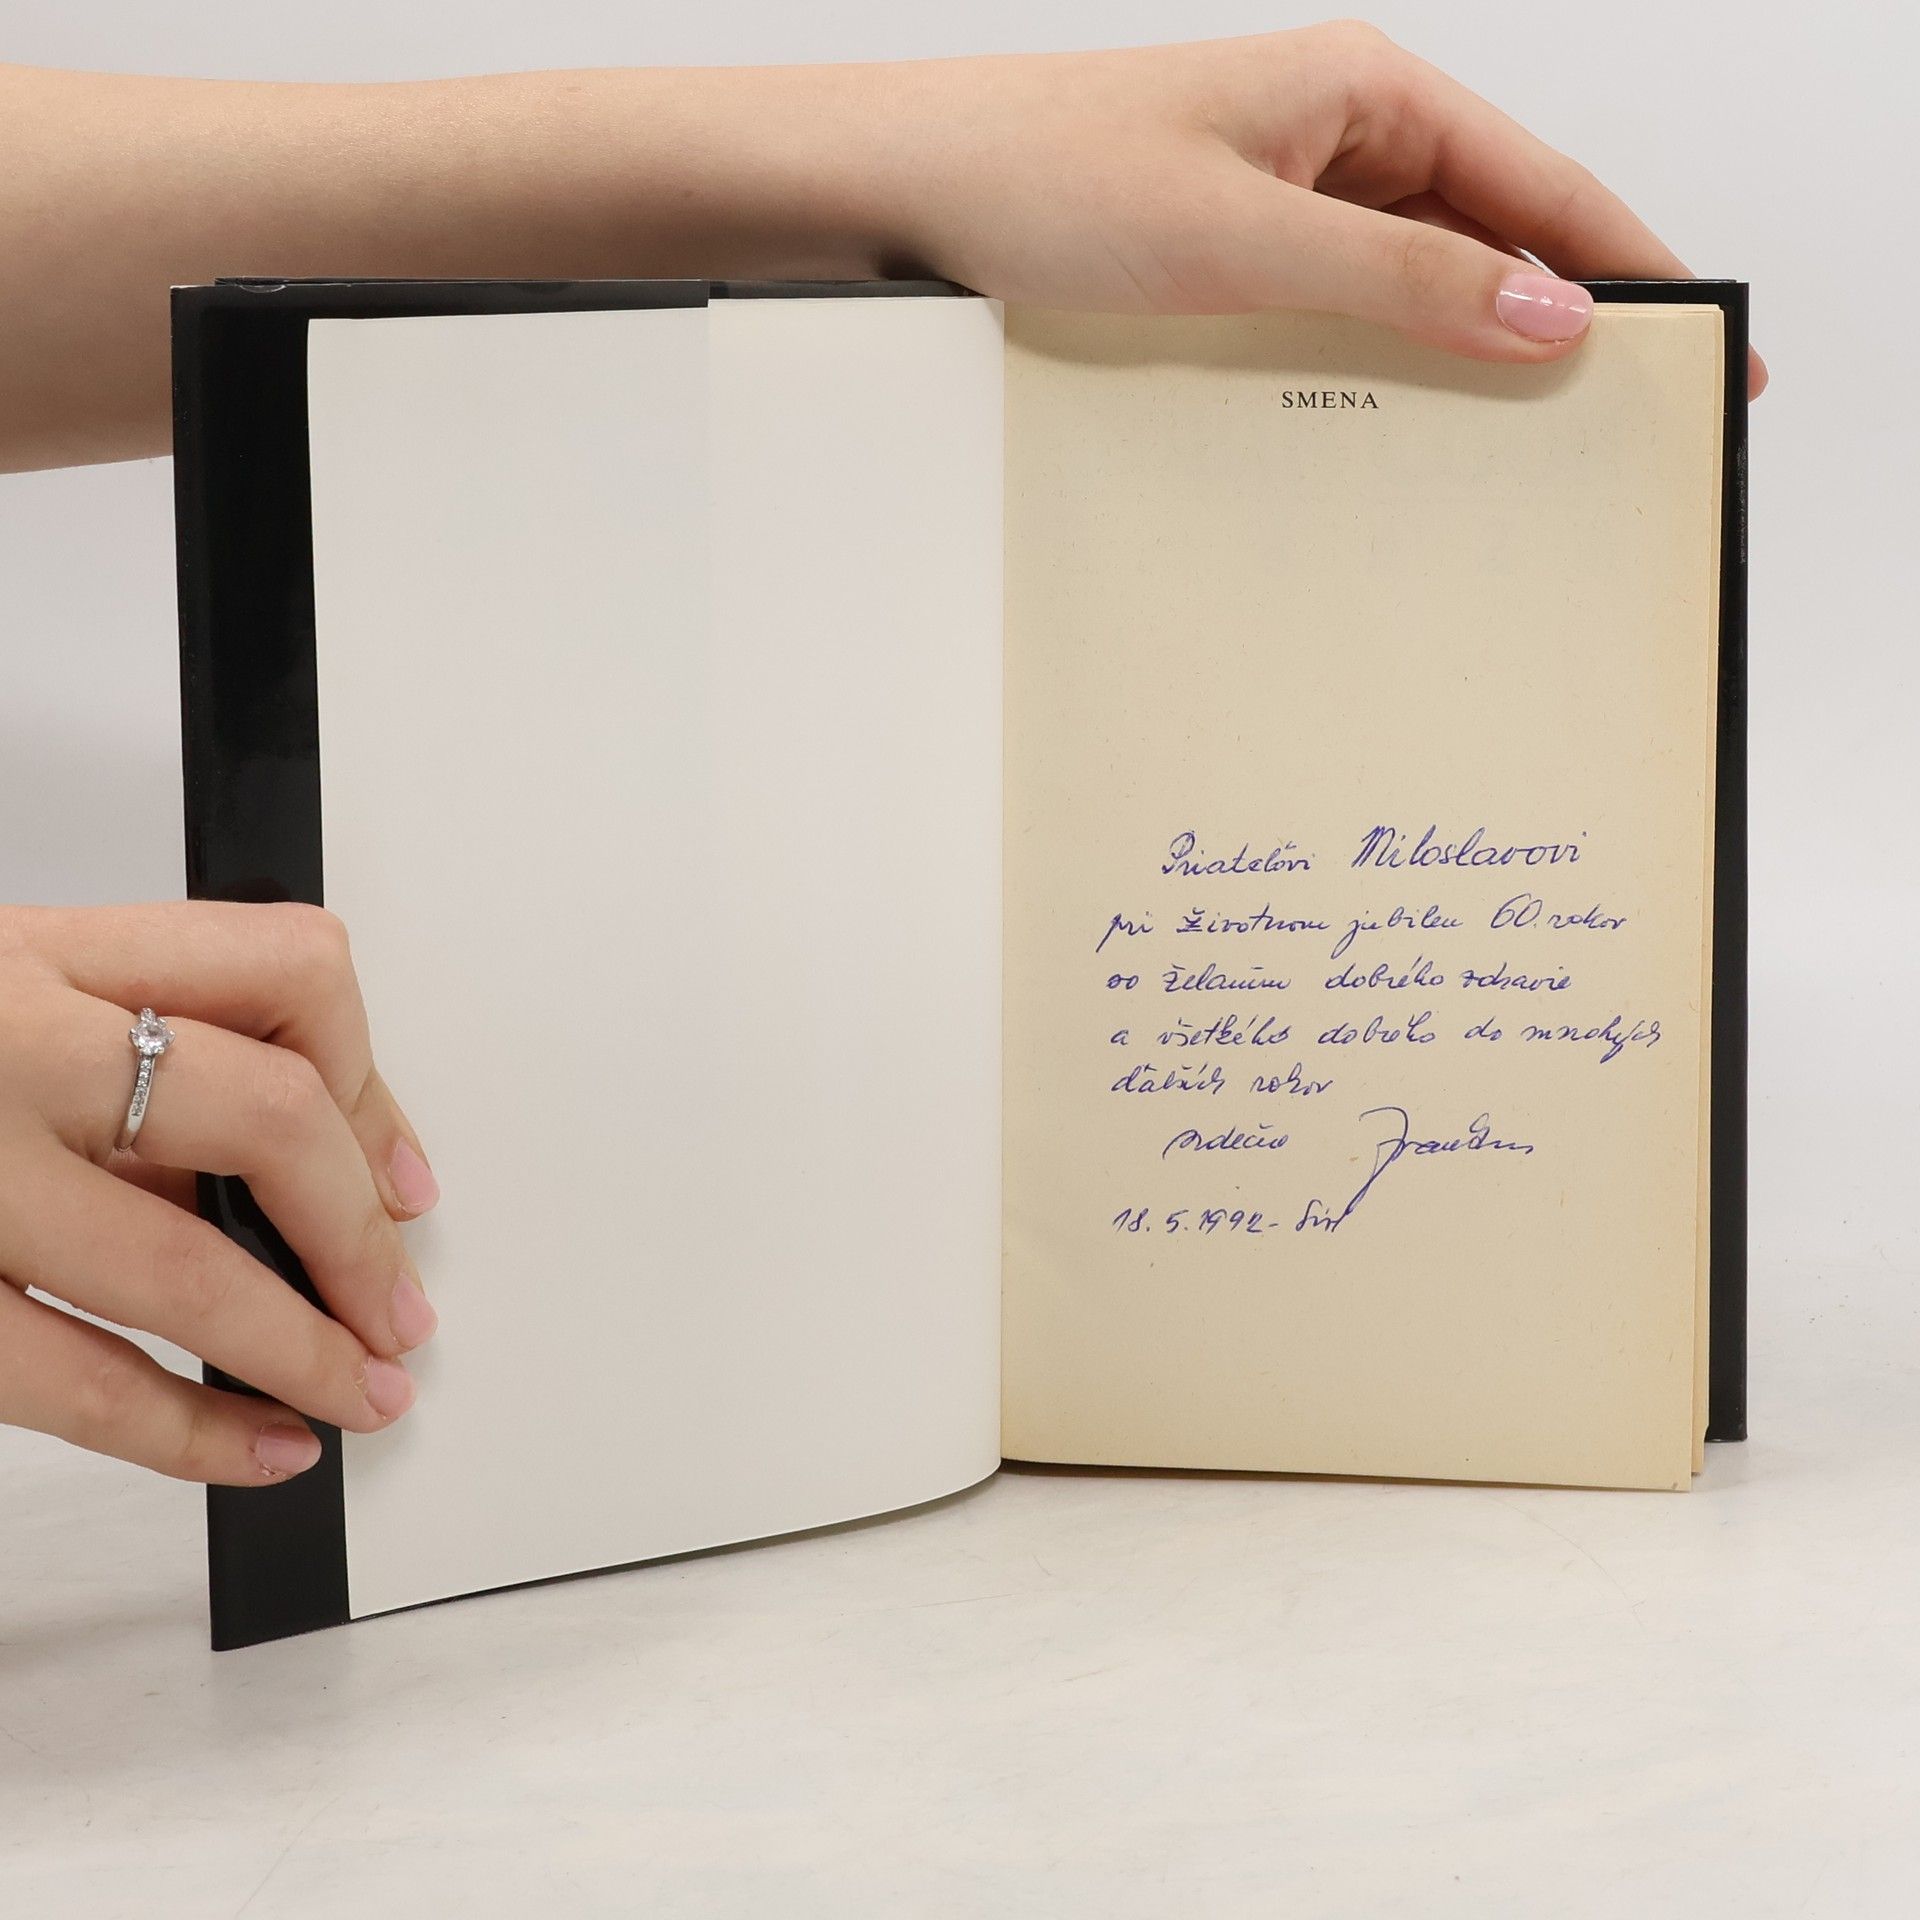 SMENA
Priateľovi Miloslavovi
pri životnom jubileu 60. rokov
so želaním dobrého zdravia
a všetkého dobrého do mnohých
ďalších rokov
srdečne
18. 5. 1992 -